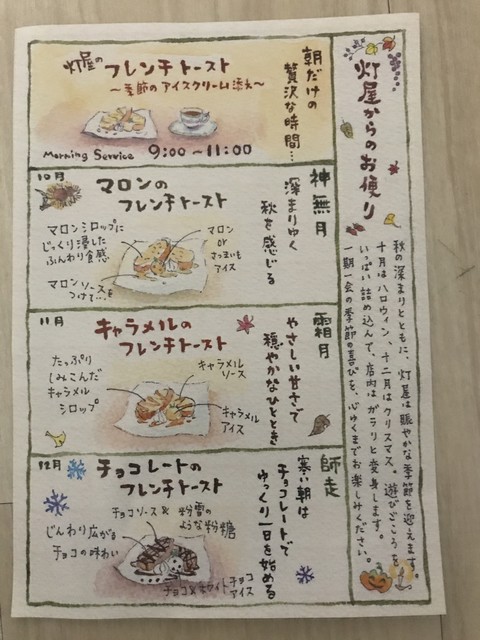 灯屋からのお便り
秋の深まりとともに、灯屋は賑やかな季節を迎えます。
十月はハロウィン、十二月はクリスマス。遊びごころを
いっぱい詰め込んで、店内はガラリと変身します。
一期一会の季節の喜びを、心ゆくまでお楽しみください。
朝だけの
贅沢な時間…
灯屋の
フレンチトースト
〜季節のアイスクリーム添え〜
Morning Service 9:00〜11:00
神無月
深まりゆく
秋を感じる
10月
マロンの
フレンチトースト
マロンシロップに
じっくり浸した
ふんわり食感
マロンソースを
つけて…
マロン
or
さつまいも
アイス
霜月
やさしい甘さで
穏やかなひととき
11月
キャラメルの
フレンチトースト
たっぷり
しみこんだ
キャラメル
シロップ
キャラメル
ソース
キャラメル
アイス
師走
寒い朝は
チョコレートで
ゆっくり一日を始める
12月
チョコレートの
フレンチトースト
チョコソース & 粉雪の
ような粉糖
じんわり広がる
チョコの味わい
チョコ&ホワイトチョコ
アイス